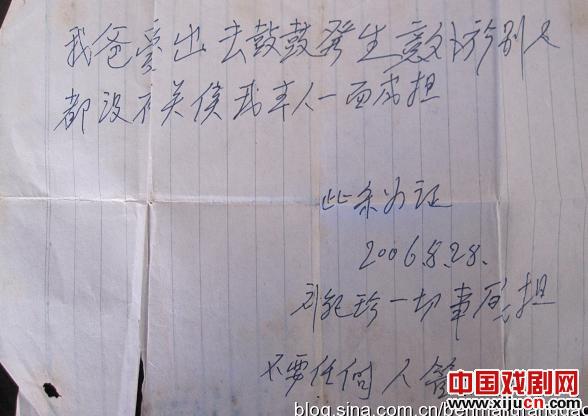 我爸爱出去鼓鼓發生意外於别人
都没有关係我本人一面承担
此条为证
2006.8.28.
一切事
不要任何人管
中国戏剧网
www.xijucn.com
blog.sina.com.cn/